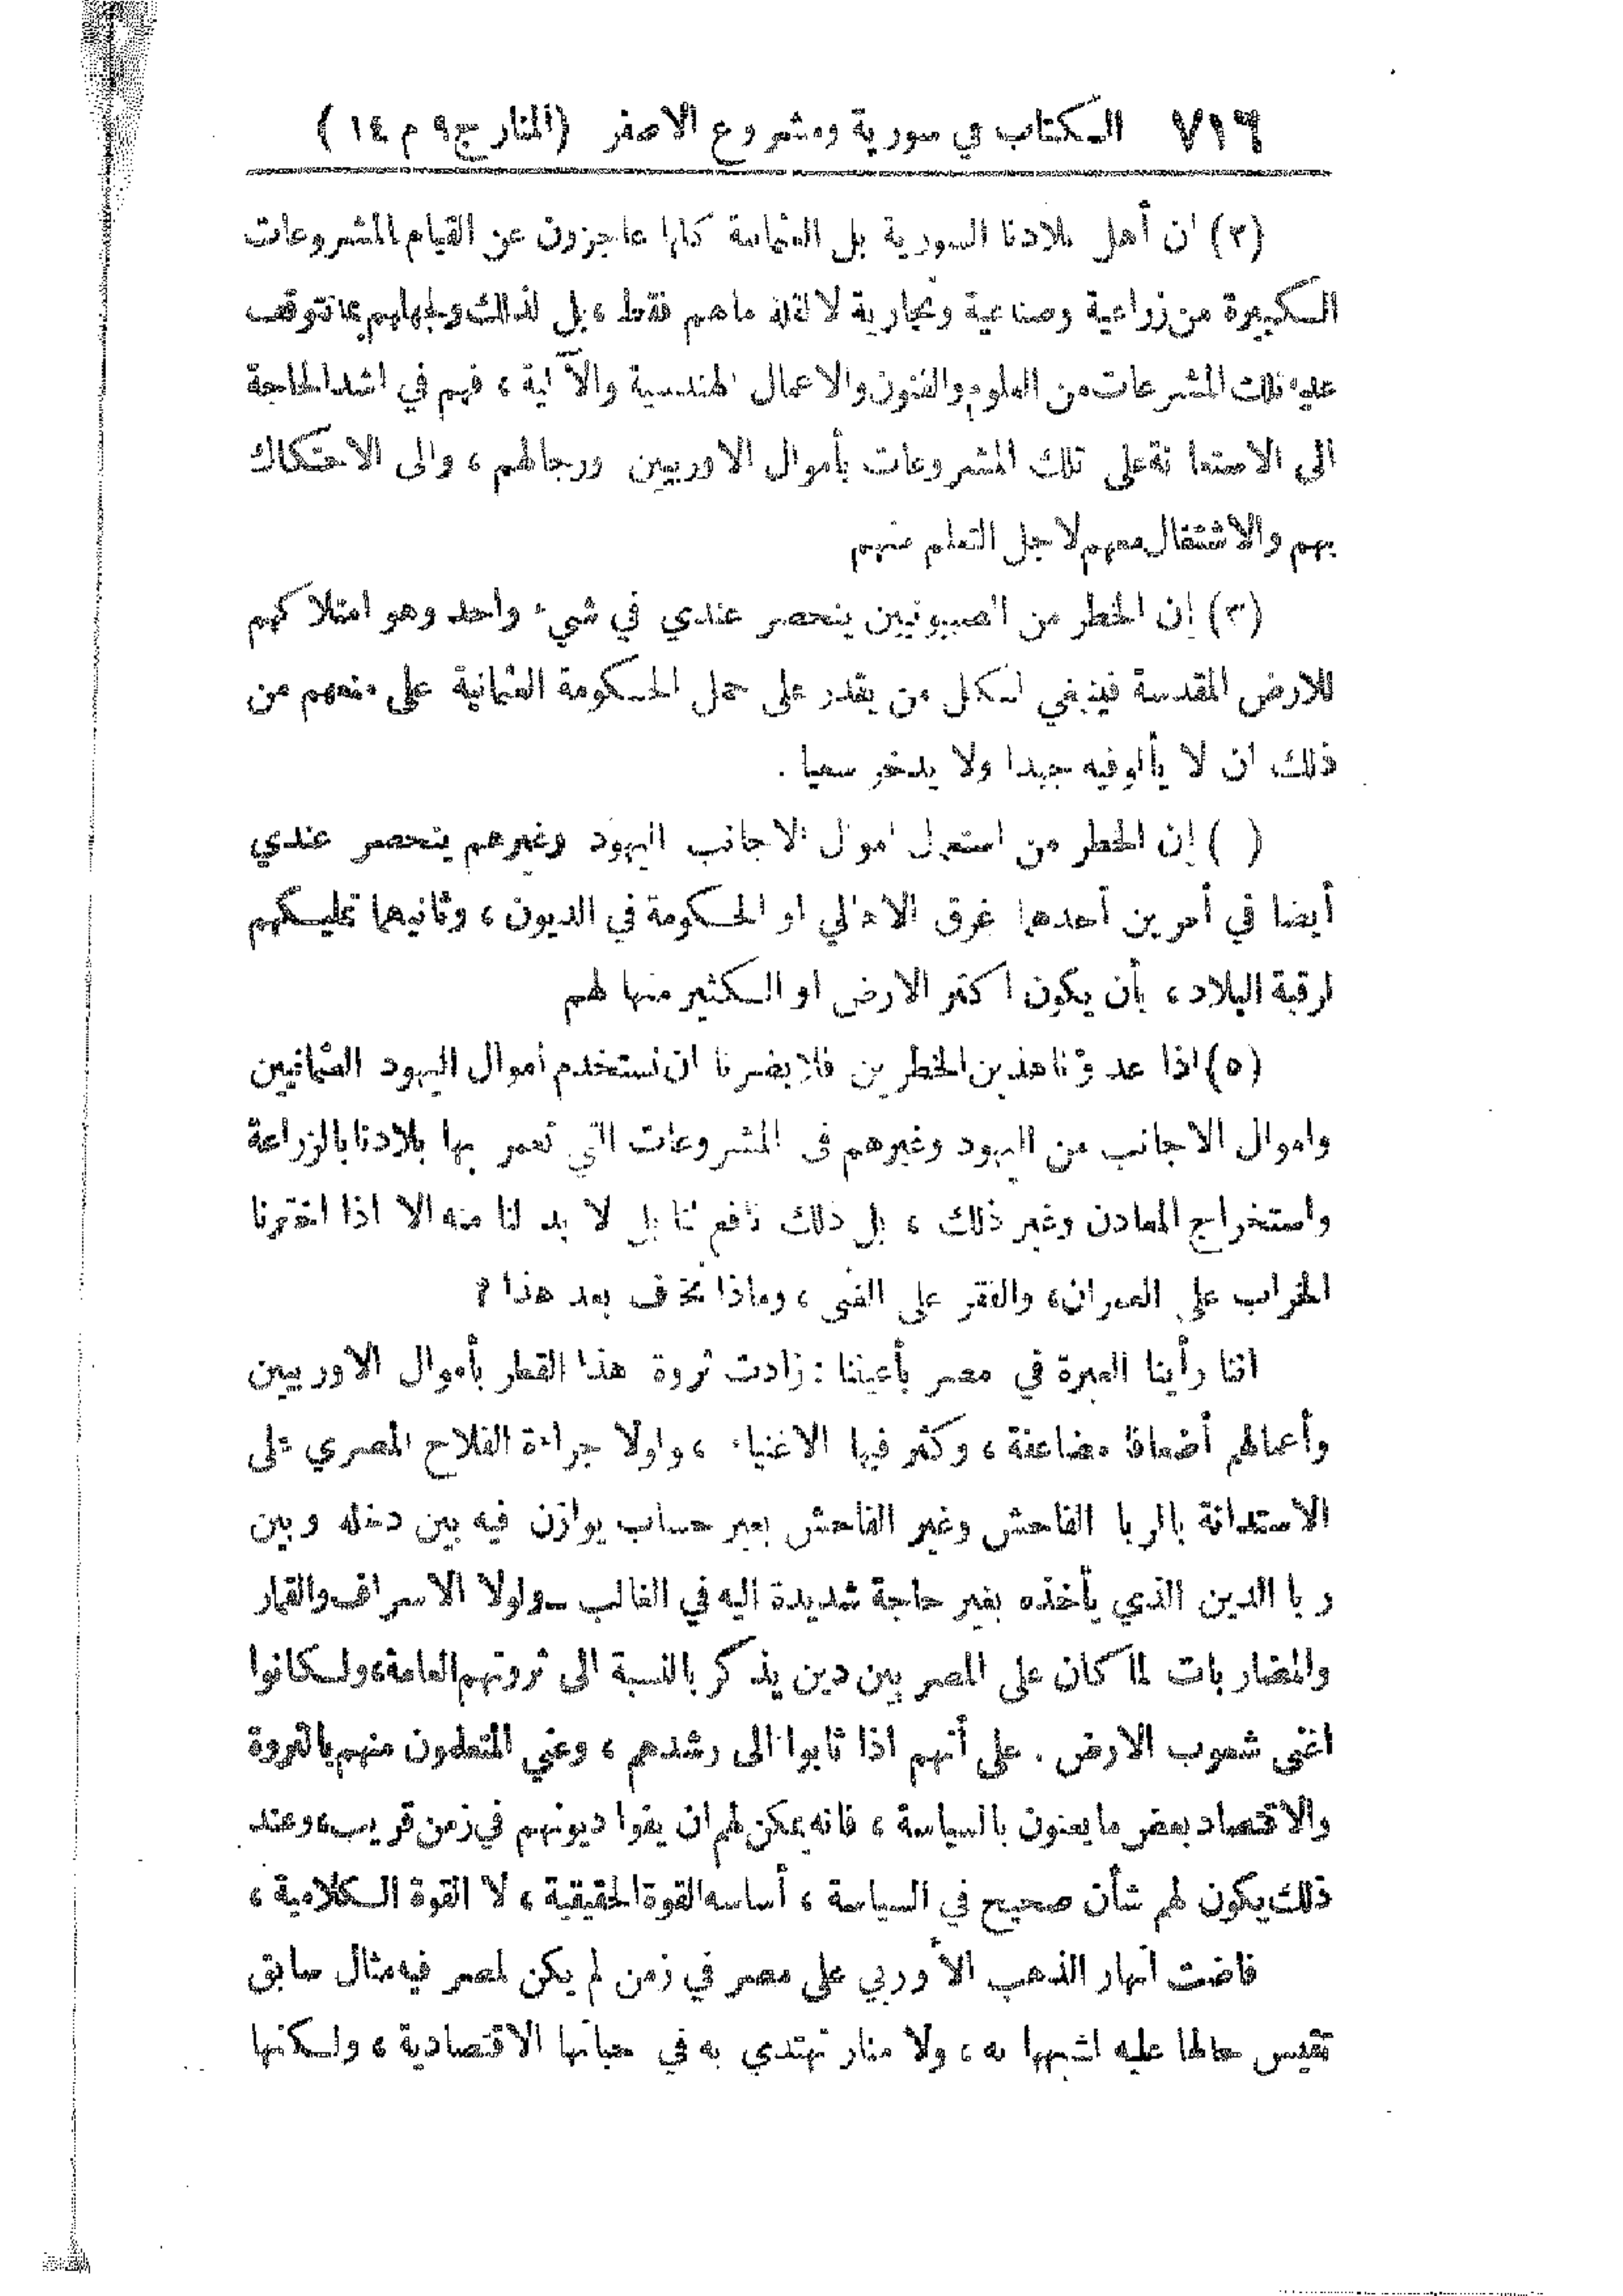 ٧١٦ الكتاب في سورية ومشروع الاصفر (المنار ج ٩ م ١٤)
(٢) ان أهل بلادنا السورية بل العثمانية كلها عاجزون عن القيام بالمشروعات
الكبيرة من زراعية وصناعية وتجارية لا لقلة مالهم فقط ، بل لذلك ولجهلهم بما تتوقف
عليه تلك المشروعات من العلوم والفنون والاعمال الهندسية والآلية ، فهم في اشد الحاجة
الى الاستعانة على تلك المشروعات بأموال الاوربيين ورجالهم ، والى الاحتكاك
بهم والاشتغال معهم لاجل التعلم منهم
(٣) إن الخطر من الصهيونيين ينحصر عندي في شيء واحد وهو امتلاكهم
للارض المقدسة فينبغي لكل من يقدر على حمل الحكومة العثمانية على منعهم من
ذلك ان لا يألو فيه جهدا ولا يدخر سعيا .
( ) إن الخطر من استعمال اموال الاجانب اليهود وغيرهم ينحصر عندي
أيضا في أمرين أحدهما غرق الاهالي او الحكومة في الديون ، وثانيهما تمليكهم
لرقبة البلاد ، بأن يكون اكثر الارض او الكثير منها لهم
(٥) اذا عدونا هذين الخطرين فلا يضرنا ان نستخدم أموال اليهود العثمانيين
واموال الاجانب من اليهود وغيرهم في المشروعات التي تعمر بها بلادنا بالزراعة
واستخراج المعادن وغير ذلك ، بل ذلك نافع لنا بل لا بد لنا منه الا اذا اخترنا
الخراب على العمران، والفقر على الغنى ، وماذا نخاف بعد هذا ؟
اننا رأينا العبرة في مصر بأعيننا : زادت ثروة هذا القطر بأموال الاوربيين
وأعمالهم أضعافا مضاعفة ، وكثر فيها الاغنياء ، ولولا جراءة الفلاح المصري على
الاستدانة بالربا الفاحش وغير الفاحش بغير حساب يوازن فيه بين دخله وبين
ربا الدين الذي يأخذه بغير حاجة شديدة اليه في الغالب ــ ولولا الاسراف والقمار
والمضاربات لما كان على المصريين دين يذكر بالنسبة الى ثروتهم العامة، ولكانوا
اغنى شعوب الارض . على أنهم اذا ثابوا الى رشدهم ، وعني المتعلمون منهم بالثروة
والاقتصاد بعض ما يعنون بالسياسة ، فانه يمكن لهم ان يفوا ديونهم في زمن قريب، وعند
ذلك يكون لهم شأن صحيح في السياسة ، أساسه القوة الحقيقية ، لا القوة الكلامية ،
فاضت انهار الذهب الأوربي على مصر في زمن لم يكن لمصر فيه مثال سابق
تقيس حالها عليه اشبهها به ، ولا منار تهتدي به في حياتها الاقتصادية ، ولكنها